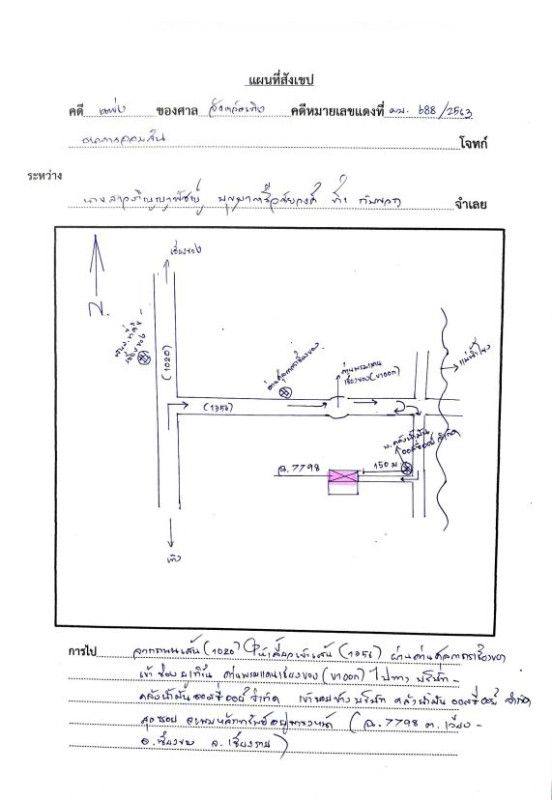 แผนที่สังเขป
คดี แพ่ง ของศาล จังหวัดเทิง คดีหมายเลขแดงที่ ผบ. 688/2563
ธนาคารออมสิน โจทก์
ระหว่าง
นางสาว ที่1 กับพวก จำเลย
N.
เชียงของ
(1020)
เชียงของ
ด่านศุลกากรเชียงของ
ด่านพรมแดน
เชียงของ(ขาออก)
แม่น้ำโขง
(1356)
บ.คลังน้ำมัน
จำกัด
ฉ.7798
150 ม
เทิง
การไป จากถนนเส้น(1020) ให้เลี้ยวเข้าเส้น (1356) ผ่านด่านศุลกากรเชียงของ
เข้า ด่านพรมแดนเชียงของ(ขาออก) ไปทาง บริษัท-
คลังน้ำมัน จำกัด เข้าซอยข้างบริษัท คลังน้ำมัน จำกัด
สุดซอย จะพบหลักทรัพย์อยู่ทาง (ฉ.7798 ต.เวียง -
อ.เชียงของ จ.เชียงราย)